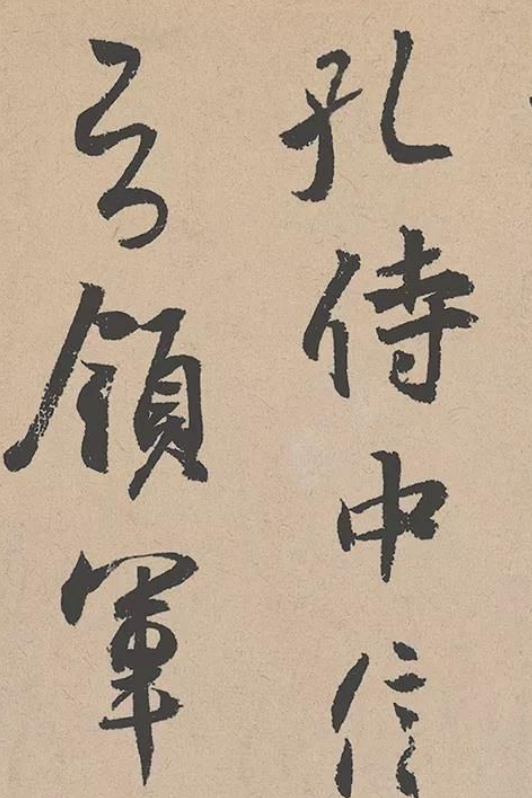 孔侍中信
領軍